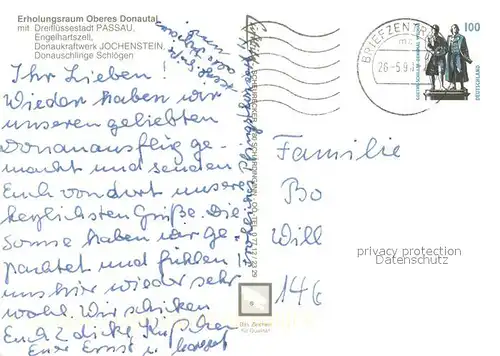 Erholungsraum Oberes Donautal
mit Dreiflüssestadt PASSAU,
Engelhartszell,
Donaukraftwerk JOCHENSTEIN,
Donauschlinge Schlögen
Ihr Lieben!
Wieder haben wir
unseren geliebten
Donauausflug ge-
macht und senden
Euch von dort unsere
herzlichsten Grüße. Die
Sonne haben wir ge-
pachtet und fühlen
uns hier wieder sehr
wohl. Wir schicken
Euch 2 dicke Küßchen
Eure Ernst u.
BRIEFZENTRUM
26-5.9
100
DEUTSCHLAND
Familie
Bo
Will
146
privacy protection
Datenschutz
Das Zeichen
für Qualität